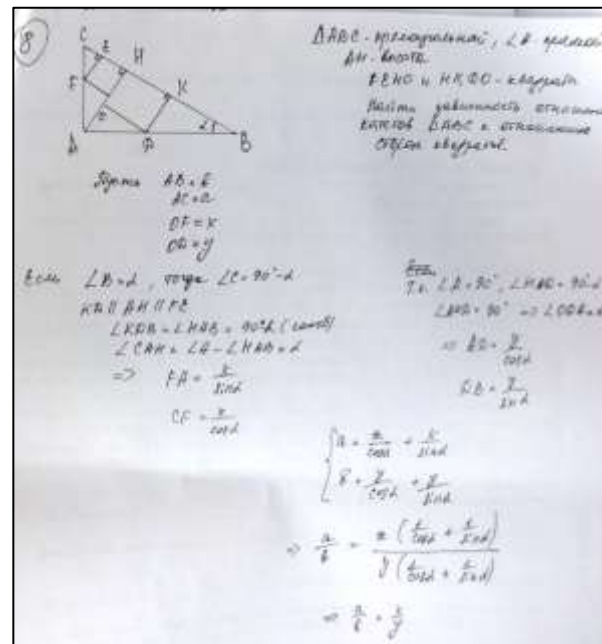 8
C
E
H
F
K
O
A
D
B
ΔABC - прямоугольный, ∠A - прямой
AH - высота
FEHO и HKDO - квадраты
Найти зависимость отношения
катетов ΔABC и отношения
сторон квадратов
Пусть AB = b
AC = a
OF = x
OD = y
Если ∠B = α, тогда ∠C = 90° - α
KD || AH || FE
∠KDB = ∠HAB = 90° - α
∠CAH = ∠A - ∠HAB = α
=> FA = x/sinα
CF = x/cosα
Т.к. ∠A = 90°, ∠HAD = 90° - α
=> AD = y/cosα
DB = y/sinα
{ a = x/cosα + x/sinα
b = y/cosα + y/sinα
=> a/b =
=> a/b = x/y